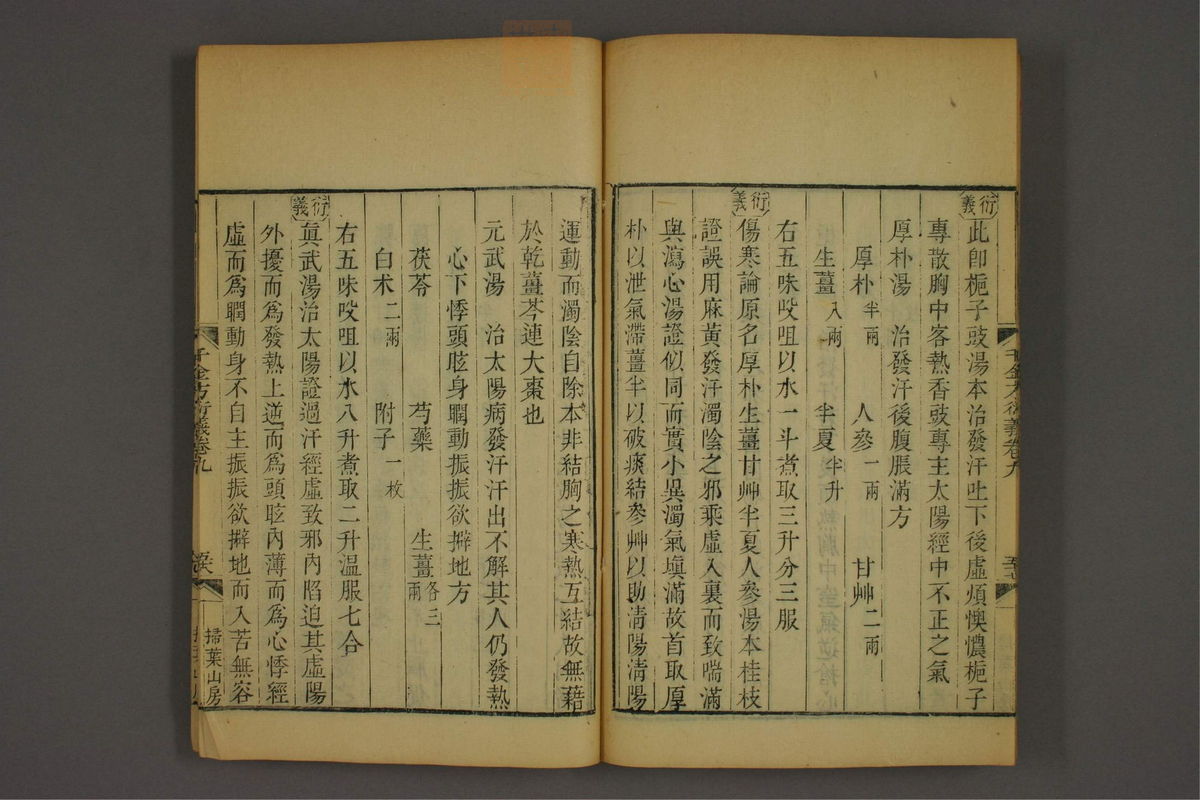 衍義
此卽梔子豉湯本治發汗吐下後虛煩懊憹梔子
專散胸中客熱香豉專主太陽經中不正之氣
厚朴湯　治發汗後腹脹滿方
厚朴半兩　人參一兩　甘艸二兩
生薑八兩　半夏半升
右五味㕮咀以水一斗煮取三升分三服
衍義
傷寒論原名厚朴生薑甘艸半夏人參湯本桂枝
證誤用麻黃發汗濁陰之邪乘虛入裏而致喘滿
與瀉心湯證似同而實小異濁氣塡滿故首取厚
朴以泄氣滯薑半以破痰結參艸以助淸陽淸陽
運動而濁陰自除本非結胸之寒熱互結故無藉
於乾薑芩連大棗也
元武湯　治太陽病發汗汗出不解其人仍發熱
心下悸頭眩身瞤動振振欲擗地方
茯苓　芍藥　生薑各三兩
白朮二兩　附子一枚
右五味㕮咀以水八升煮取二升温服七合
衍義
眞武湯治太陽證過汗經虛致邪內陷迫其虛陽
外擾而爲發熱上逆而爲頭眩內薄而爲心悸經
虛而爲瞤動身不自主振振欲擗地而入苦無容
千金方衍義卷九
掃葉山房